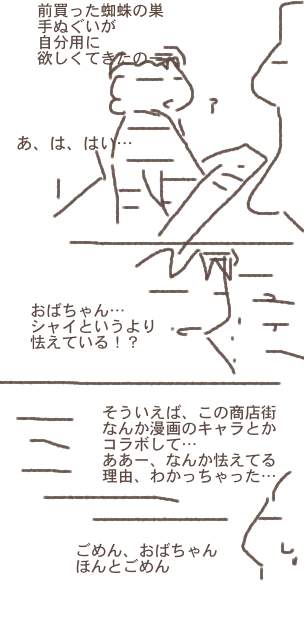 前買った蜘蛛の巣
手ぬぐいが
自分用に
欲しくてきたの
?
あ、は、はい…
おばちゃん…
シャイというより
怯えている！？
そういえば、この商店街
なんか漫画のキャラとか
コラボして…
ああー、なんか怯えてる
理由、わかっちゃった…
ごめん、おばちゃん
ほんとごめん